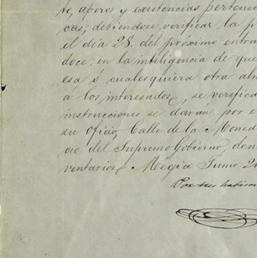 te, aperos y existencias pertenec
cas; debiéndose verificar la p
el dia 28. del próximo entra
doce: en la inteligencia de que
esa ó cualesquiera otra alm
á los interesados, se verifica
instrucciones se darán por e
su oficio, Calle de la Moned
cio del Supremo Gobierno, don
ventarios. Megico Junio 2
Por sus